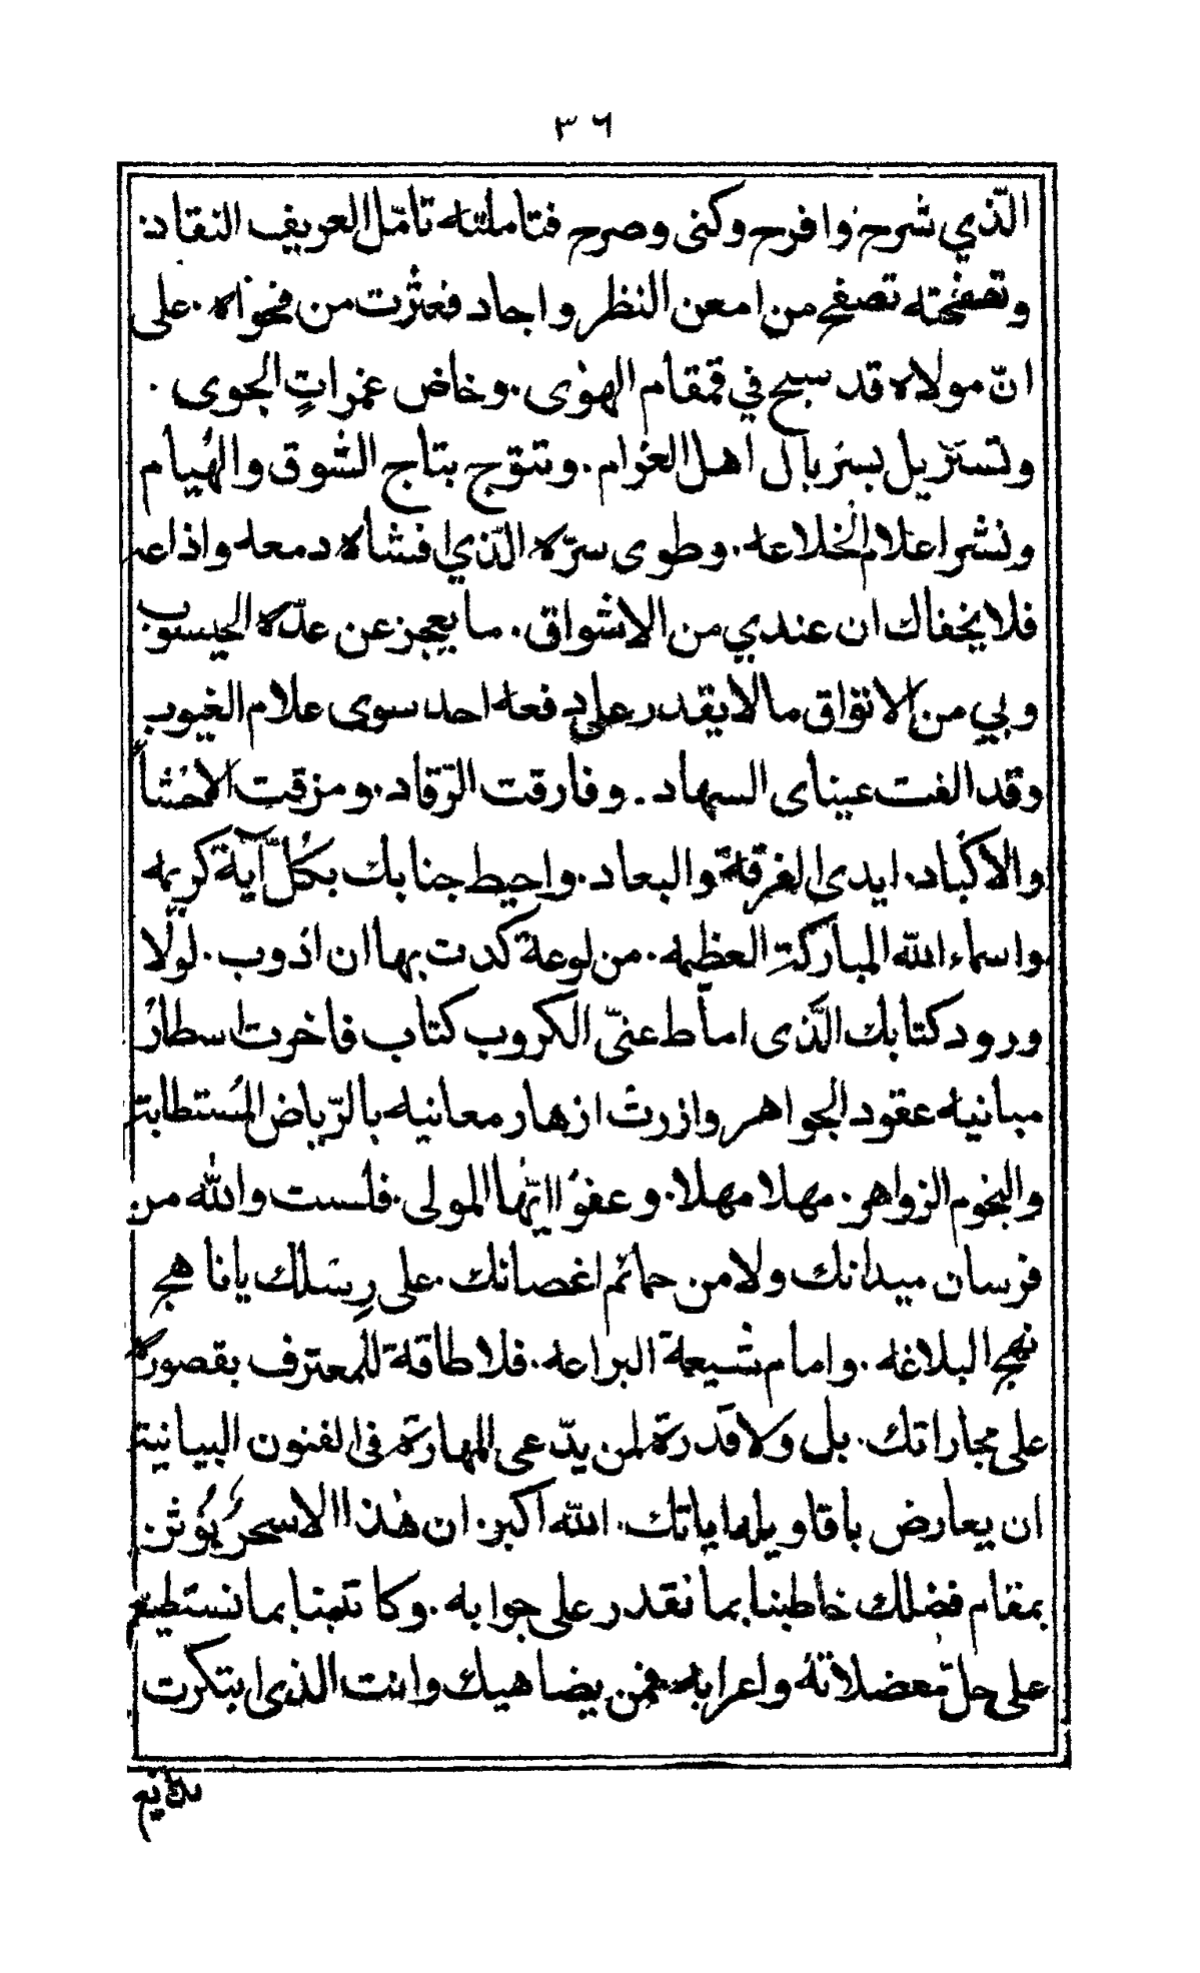 ٣٦
الّذي شرح وافرح وكنى وصرح فتاملته تامّل العريف النقاد.
وتصفحته تصفح من امعن النظر واجاد فعثرت من فحواه. على
انّ مولاه قد سبح في قمقام الهوى. وخاض غمراتِ الجوى.
وتسربل بسربال اهل الغرام. وتتوّج بتاج الشوق والهُيام
ونشر اعلام الخلاعه. وطوى سرّه الّذي افشاه دمعه واذاعه
فلا يخفاك ان عندي من الاشواق. ما يعجز عن عدّه الحيسوب
وبي من الاتواق ما لا يقدر على دفعه احد سوى علام الغيوب
وقد الفت عيناى السهاد. وفارقت الرّقاد. ومزقت الاحشاء
والاكباد. ايدى الفرقة والبعاد. واحيط جنابك بكلّ آية كريمه
واسماء الله المباركة العظيمه. من لوعة كدت بها ان اذوب. لولا
ورود كتابك الّذى اماط عنّى الكروب كتاب فاخرت اسطارُ
مبانيه عقود الجواهر وازرت ازهار معانيه بالرّياض المُستطابة
والنجوم الزواهر. مهلا مهلا. وعفوًا ايّها المولى. فلست والله من
فرسان ميدانك ولا من حمائم اغصانك. على رِسَلك يا ناهج
نهج البلاغه. وامام شيعة البراعه. فلا طاقة للمعترف بقصوره
على مجاراتك. بل ولا قدرة لمن يدّعى المهارة فى الفنون البيانية
ان يعارض باقاويلها اياتك. الله اكبر. ان هٰذا الا سحرٌ يُؤثر.
بمقام فضلك خاطبنا بما نقدر على جوابه. وكاتبنا بما نستطيع
على حلّ مُعضلاته واعرابه فمن يضاهيك وانت الذى ابتكرت